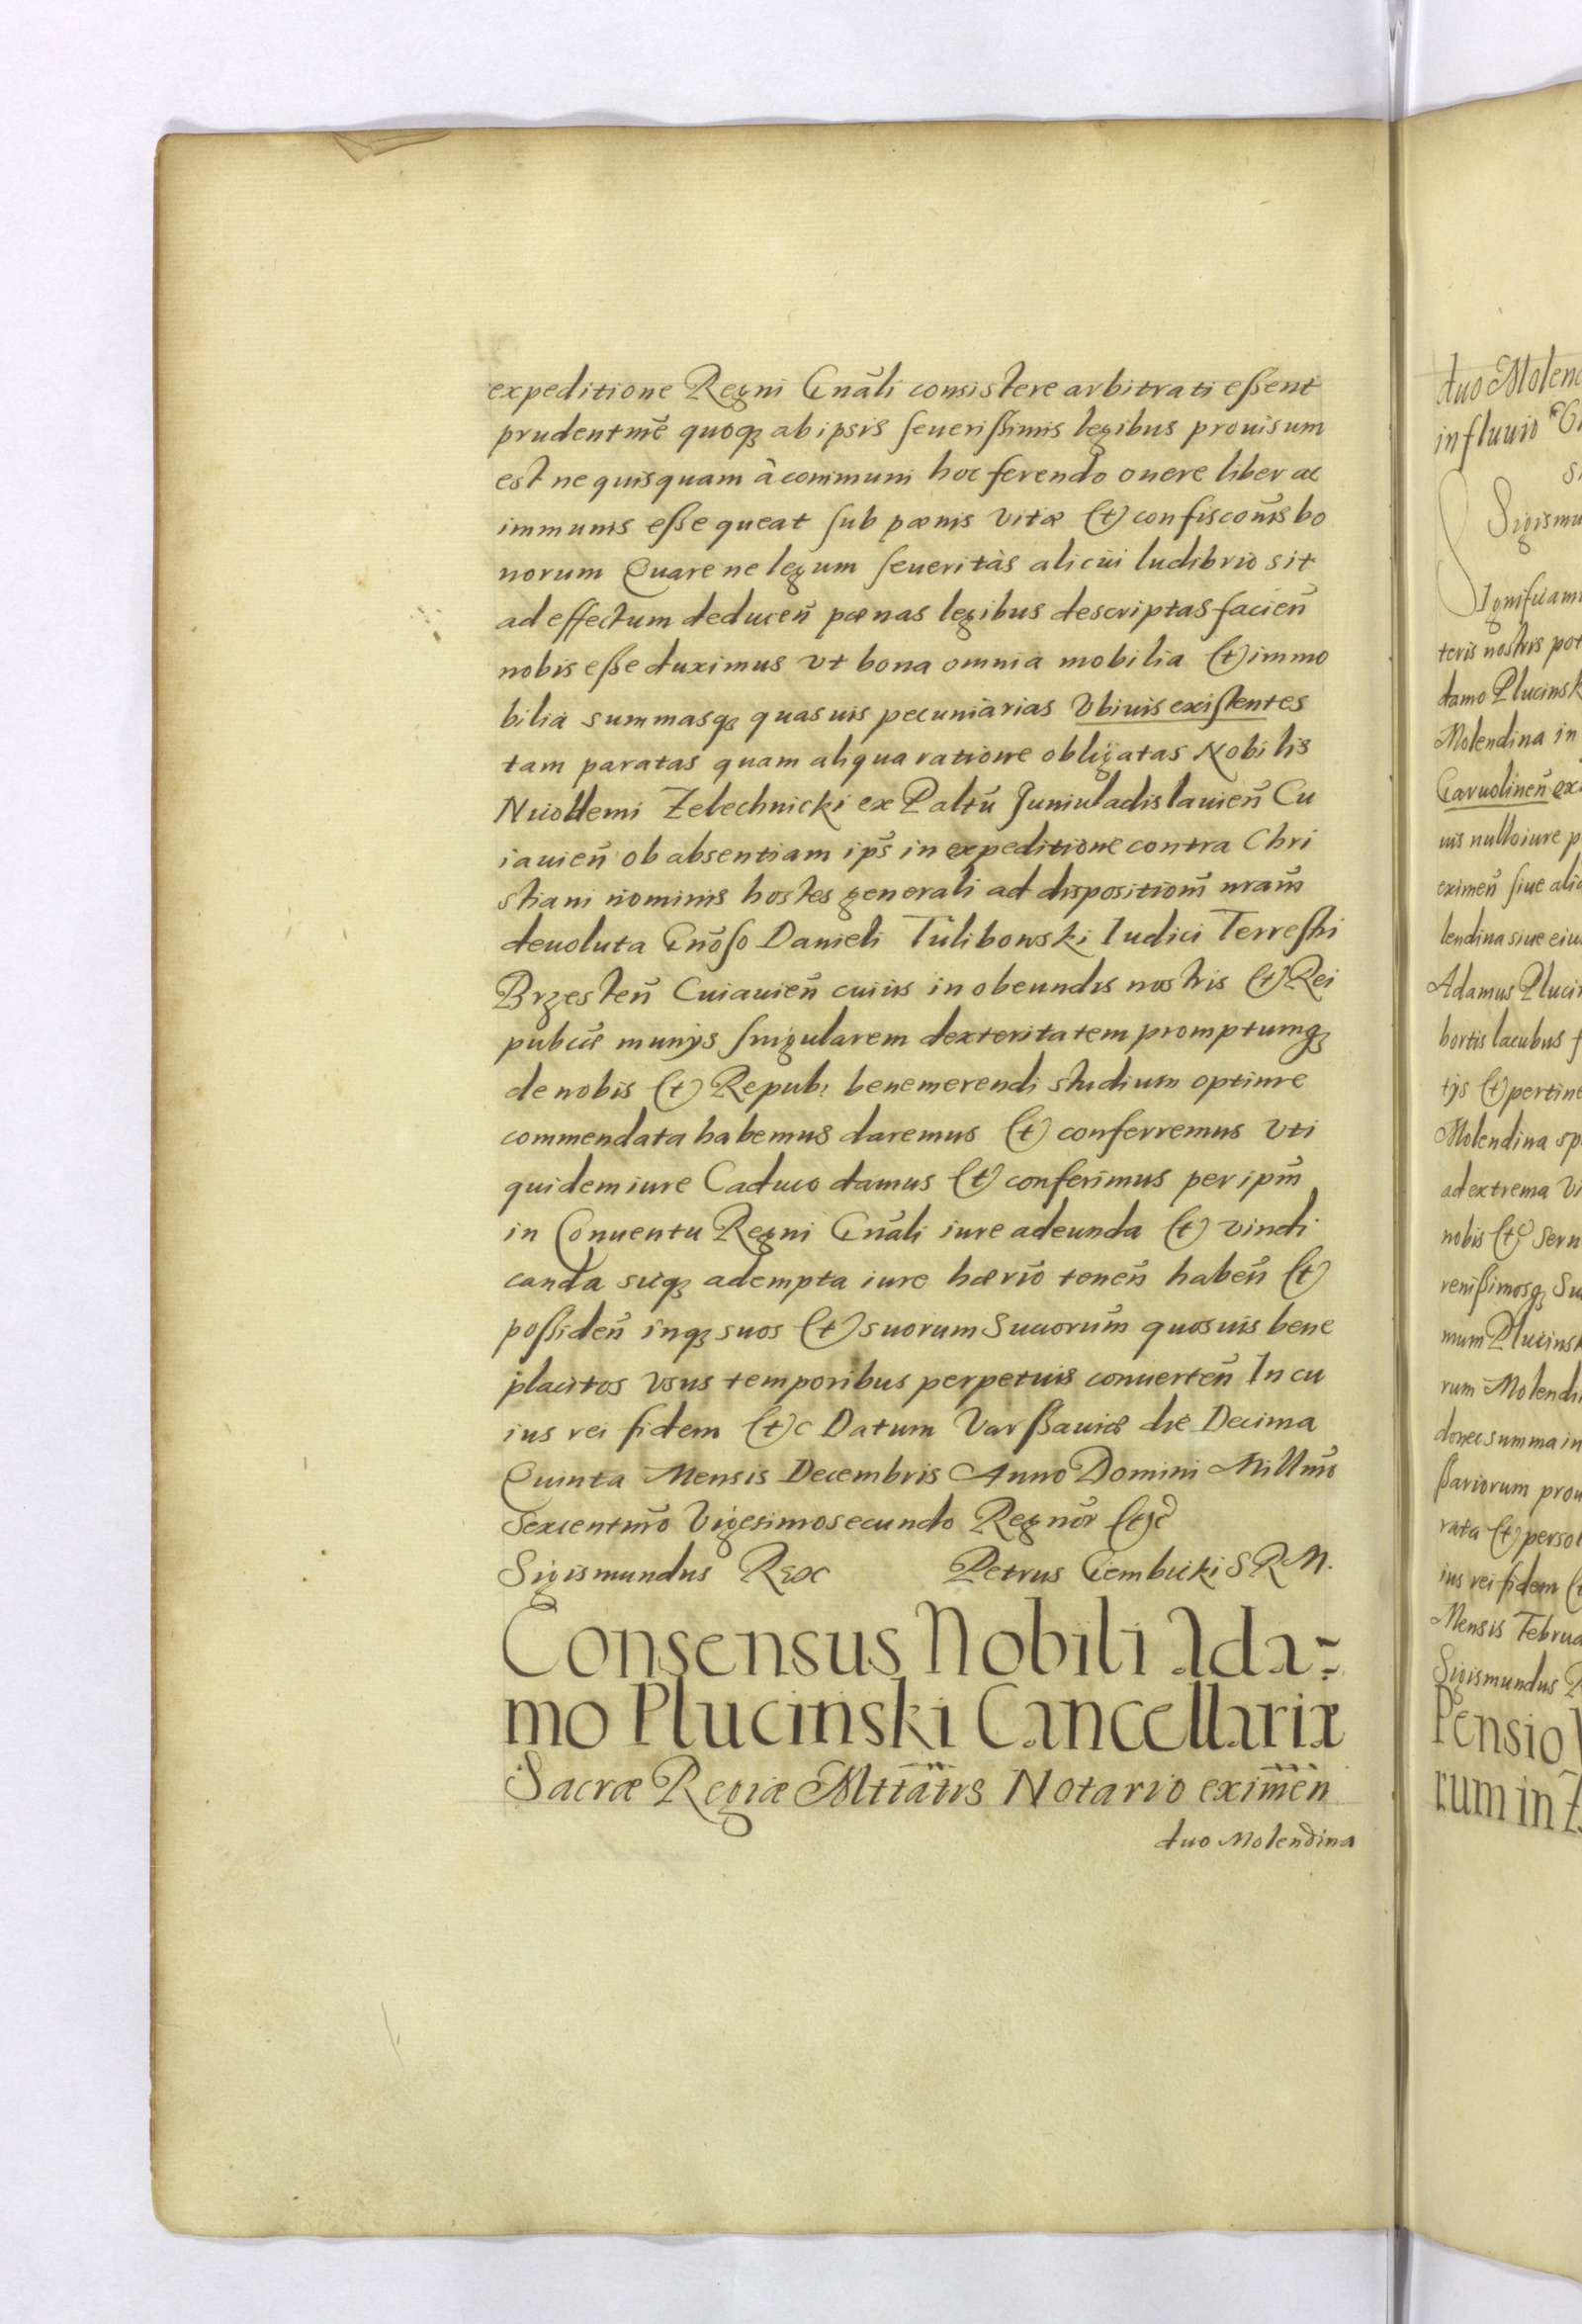 expeditione Regni Gnāli consistere arbitrati eſsent
prudentmē quoqȝ ab ipsis ſeueriſsimis legibus prouisum
est ne quisquam à communi hoc ferendo onere liber ac
immunis eſse queat ſub pœnis vitæ (et) confiscoñis bo
norum Quare ne legum ſeueritàs alicui ludibrio sit
ad effectum deducen̄ pœnas legibus descriptas facien̄
nobis eſse duximus vt bona omnia mobilia (et) immo
bilia summasqȝ quasuis pecuniarias vbiuis exiſtentes
tam paratas quam aliqua ratione obligatas Nobilis
Zelechnicki ex Paltū Juniuladislauien̄ Cu
iauien̄ ob absentiam ipš in expeditione contra Chri
stiani nominis hostes generali ad dispositionē nrām
deuoluta Gnōſo Danieli Tulibowski Iudici Terreſtri
Brzesten̄ Cuiauien̄ cuius in obeundis nostris (et) Rei
pubcæ munÿs ſingularem dexteritatem promptumqȝ
de nobis (et) Repub: benemerendi studium optime
commendata habemus daremus (et) conferremus vti
quidem iure Caduco damus (et) conferimus per ipm̄
in Conuentu Regni Gnāli iure adeunda (et) vindi
canda sicqȝ adempta iure hærio̅ tenen̄ haben̄ (et)
poſsiden̄ inqȝ suos (et) suorum Succorum̄ quosuis bene
placitos vsus temporibus perpetuis conuerten̄ In cu
ius rei fidem (et)c Datum Varſsauiæ die Decima
Quinta Mensis Decembris Anno Domini Millmo̅
Sexcentmo̅ Vigesimosecundo Regnor̄ (et)c
Sigismundus Rex Petrus Gembicki S R M.
Consensus Nobili Ada-
mo Plucinski Cancellariæ
Sacræ Regiæ Mttātis Notario eximen̄
duo Molendina
duo Molend
in fluuio
Sigismu
Ignificam
teris nostris pot
damo Plucinsk
Molendina in
Garuolinen̄ ex
uis nullo iure p
eximen̄ ſiue alia
lendina siue eiu
Adamus Plucin
hortis lacubus f
tÿs (et) pertine
Molendina sp
ad extrema vi
nobis (et) Seru
reniſsimosqȝ Su
mum Plucinsk
rum Molendi
donec summa in
ſsariorum prou
rata (et) persol
ius rei fidem (e
Mensis Februa
Sigismundus R
Pensio
rum in